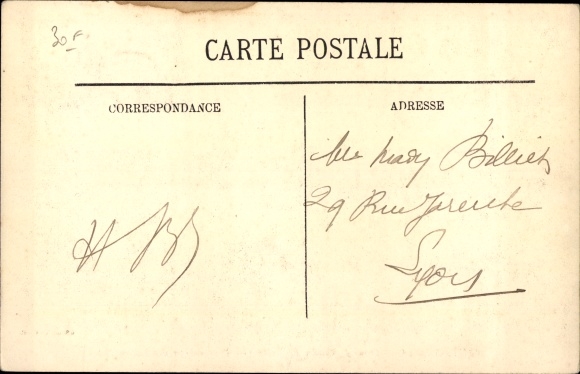 30 F
CARTE POSTALE
CORRESPONDANCE
ADRESSE
Mlle Mary Billiet
29 Rue Jarente
Lyon